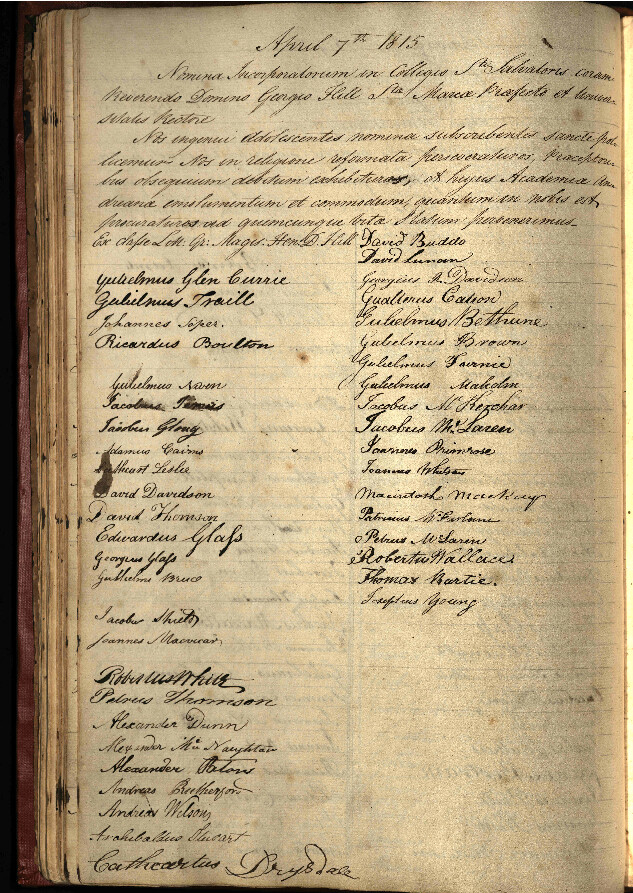 April 7th 1815
Nomina Incorporatorum in Collegio Sti Salvatoris coram
Reverendo Domino Georgio Hill Stae Mariae Praefecto et Univer
sitatis Rectore
Nos ingenui adolescentes nomina subscribentes sancte pol
licemur Nos in religione reformata perseveraturos, Praeceptori
bus obsequium debitum exhibituros, et hujus Academiae An
dreanae emolumentum et commodum, quantum in nobis est
procuraturos ad quemcunque vitae statum pervenerimus
Ex classe Gr. Magis. Hen. D. Hill
Gulielmus Glen Currie
Gulielmus Traill
Johannes Soper.
Ricardus Boulton
Gulielmus Nairn
Jacobus
Jacobus Gloag
Adamus Cairns
Leslie
David Davidson
David Thomson
Edwardus Glass
Georgius Glass
Gulielmus Bruce
Jacobus Shields
Joannes Macvicar
Robertus White
Petrus Thomson
Alexander Dunn
Alexander Mc Naughton
Alexander Paton
Andreas Rutherford
Andreas Wilson
Archibaldus Stewart
Cathcartus Drysdale
David Buddo
David Lunan
Georgius R. Davidson
Gualterus Caison
Gulielmus Bethune
Gulielmus Brown
Gulielmus Fernie
Gulielmus Malcolm
Jacobus Mc
Jacobus Mc Laren
Joannes Primrose
Joannes Wilson
Macintosh Mackay
Patricius McFarlane
Petrus McLaren
Robertus Wallace
Thomas Bartie.
Josephus Young